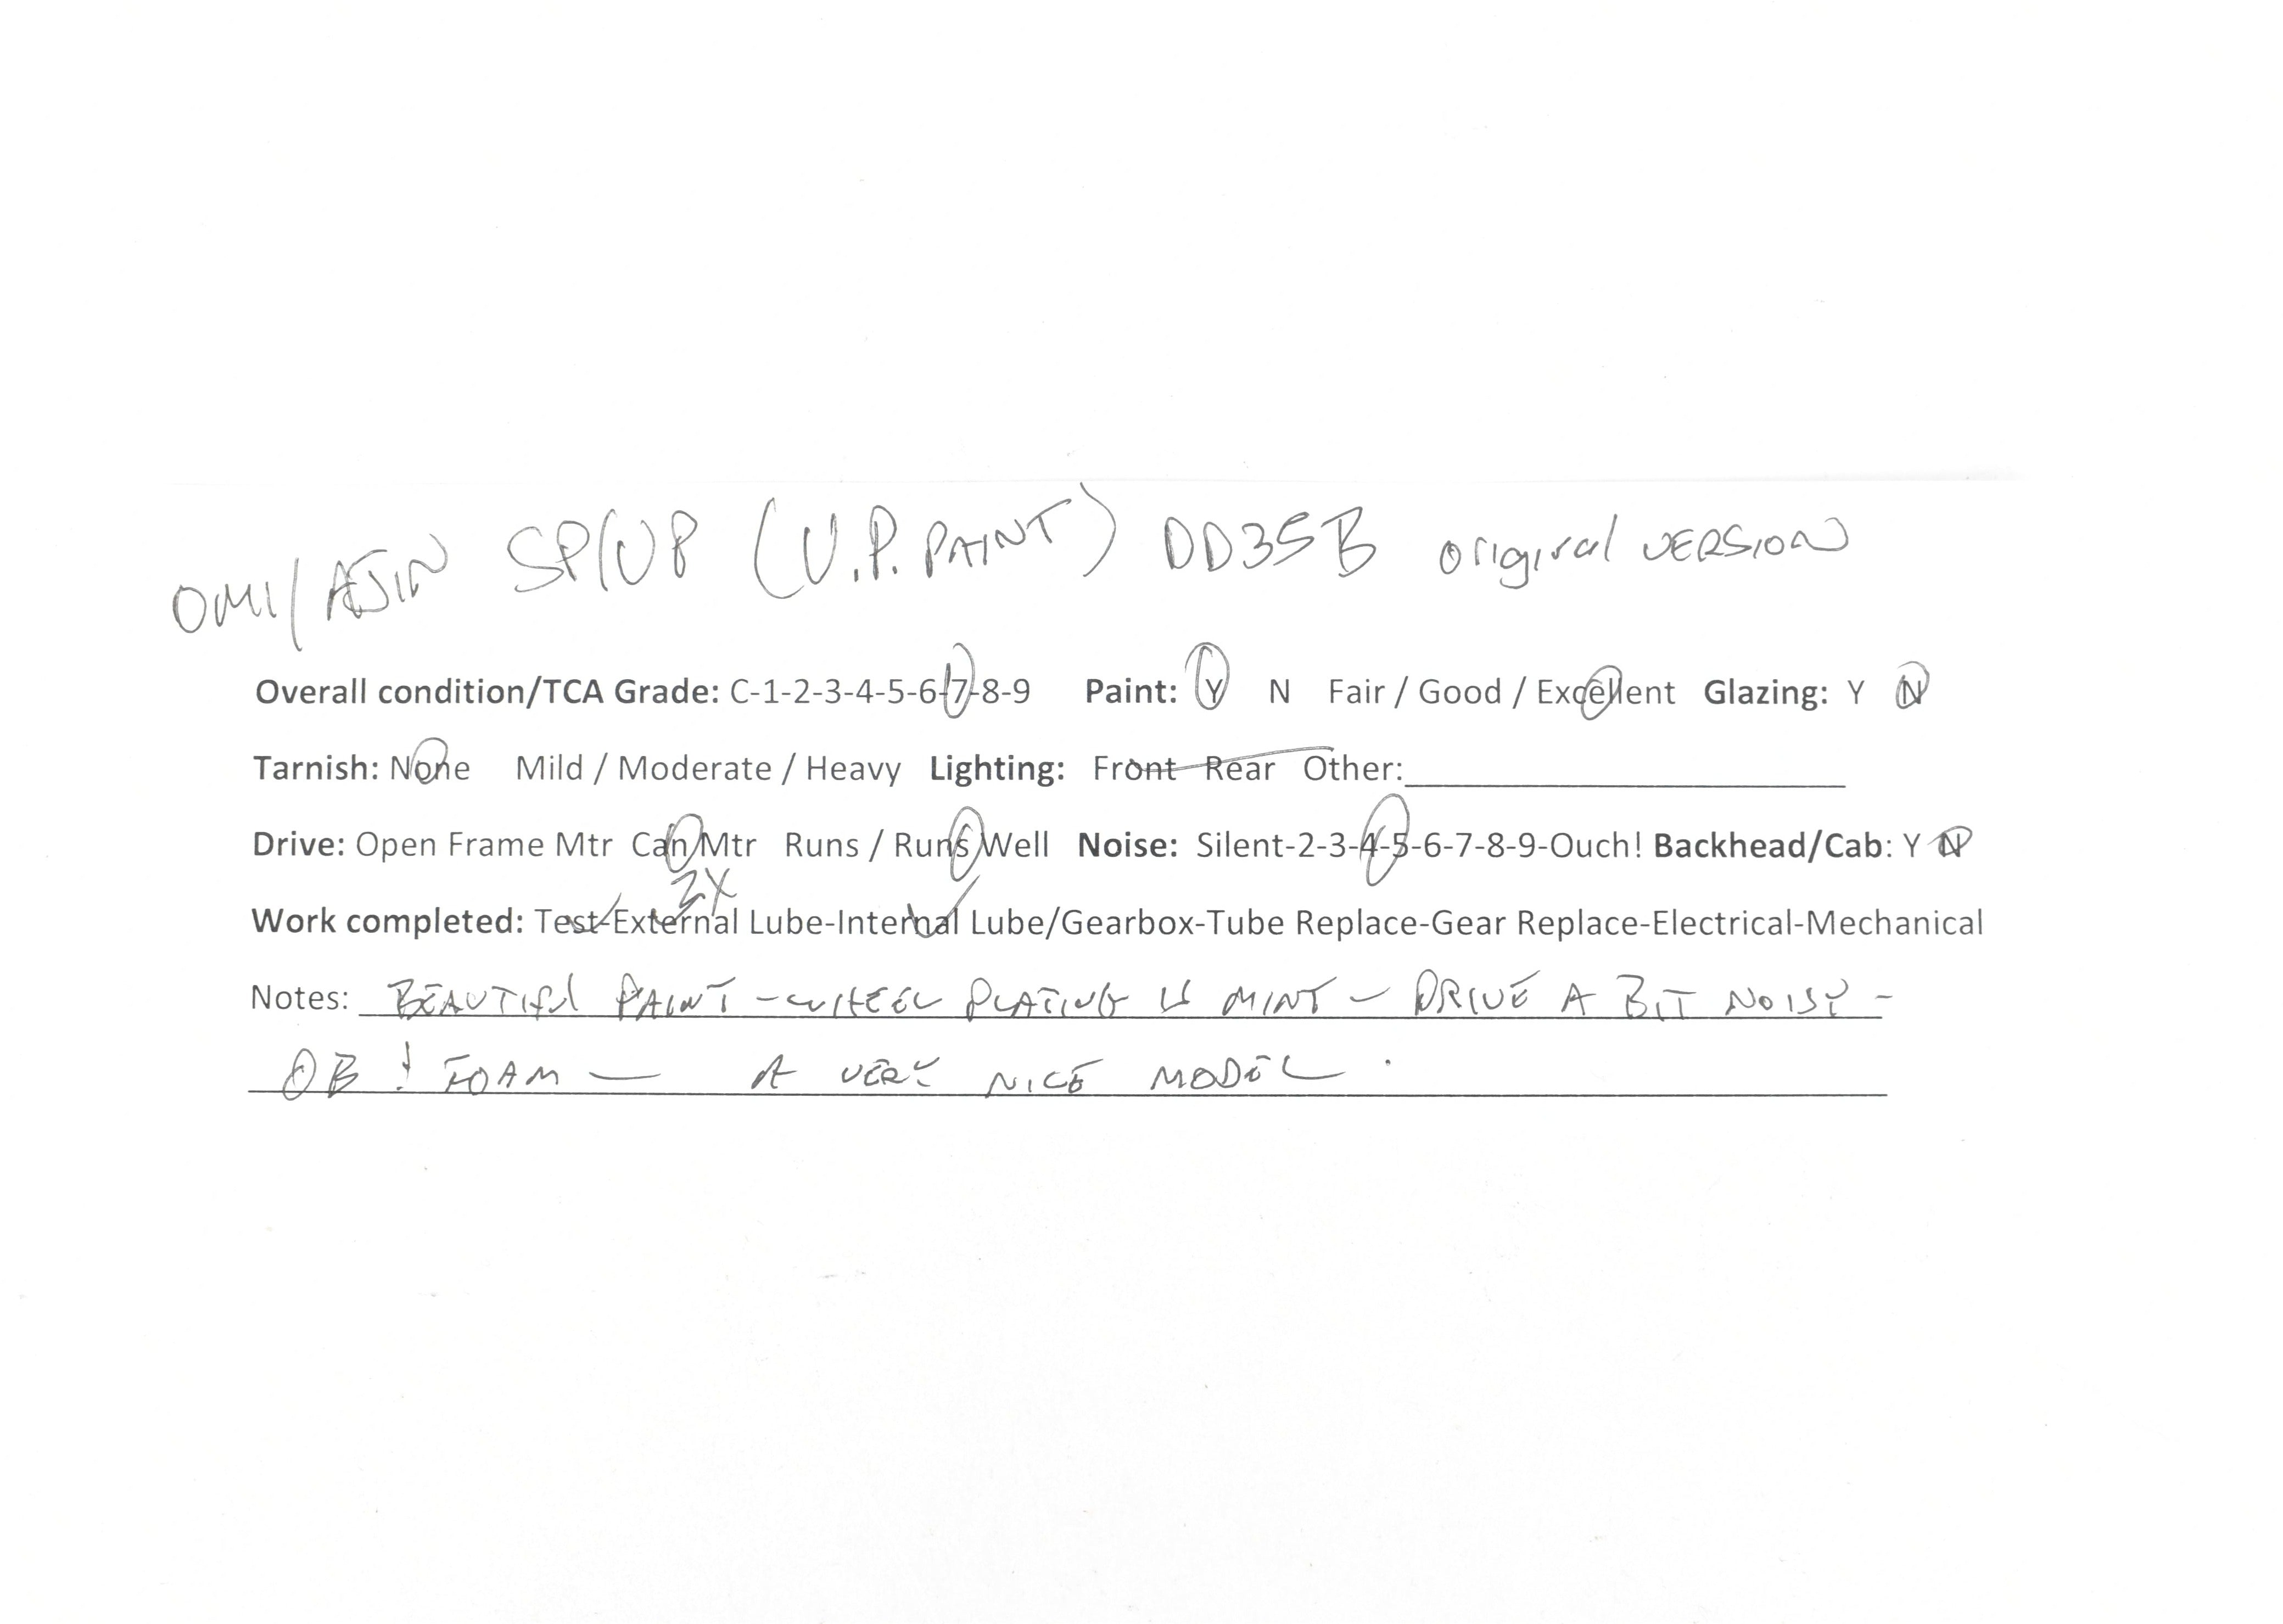 OMI/AJIN SP/UP (U.P. PAINT) DD35B original VERSION
Overall condition/TCA Grade: C-1-2-3-4-5-6-7-8-9 Paint: Y N Fair / Good / Excellent Glazing: Y N
Tarnish: None Mild / Moderate / Heavy Lighting: Front Rear Other:
Drive: Open Frame Mtr Can Mtr Runs / Runs Well Noise: Silent-2-3-4-5-6-7-8-9-Ouch! Backhead/Cab: Y N
2X
Work completed: Test-External Lube-Internal Lube/Gearbox-Tube Replace-Gear Replace-Electrical-Mechanical
Notes: BEAUTIFUL PAINT - WHEEL PLATING IS MINT - DRIVE A BIT NOISY -
OB & FOAM - A VERY NICE MODEL.